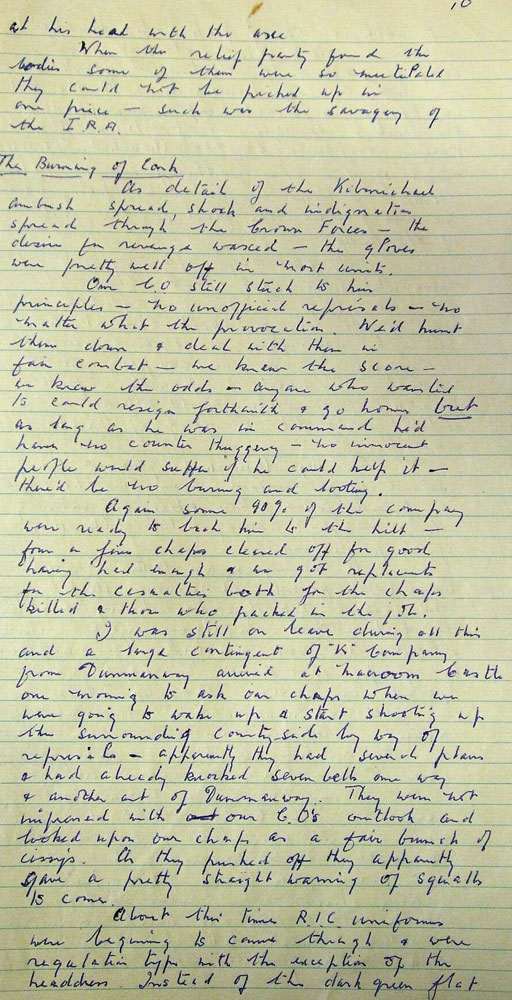 10
at his head with the axe
When the relief party found the
bodies some of them were so mutilated
they could not be picked up in
one piece – such was the savagery of
the I.R.A.
The Burning of Cork
As detail of the Kilmichael
ambush spread, shock and indignation
spread through the Crown Forces – the
desire for revenge waxed – the gloves
were pretty well off in most units.
Our C.O still stuck to his
principles – no unofficial reprisals – no
matter what the provocation. We'd hunt
them down & deal with them in
fair combat – we knew the score –
we knew the odds – anyone who wanted
to could resign forthwith & go home but
as long as he was in command he'd
have no counter thuggery – no innocent
people would suffer if he could help it –
there'd be no burning and looting.
Again some 90% of the company
were ready to back him to the hilt –
four or five chaps cleared off for good
having had enough & we got replacements
for the casualties both for the chaps
killed & those who packed in the job.
I was still on leave during all this
and a large contingent of "K" Company
from Dunmanway arrived at Macroom Castle
one morning to ask our chaps when we
were going to wake up & start shooting up
the surrounding county-side by way of
reprisals – apparently they had several plans
& had already knocked seven bells one way
& another out of Dunmanway. They were not
impressed with our C.O's outlook and
looked upon our chaps as a fair bunch of
cissys. As they pushed off they apparently
gave a pretty straight warning of squalls
to come.
About this time R.I.C. uniforms
were beginning to come through & were
regulation type with the exception of the
headdress. Instead of the dark green flat